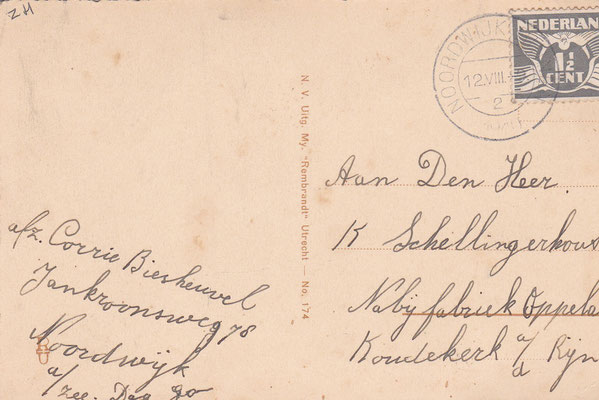 ZH
NOORDWIJK
12.VIII.
2
NEDERLAN
1½
CENT
N. V. Uitg. My. "Rembrandt" Utrecht — No. 174
Aan Den Heer.
K Schellingerhou
Nabij fabriek Oppela
Koudekerk a/d Rijn
afz. Corrie Biesheuvel
Jankroonsweg 78
Noordwijk
a/zee. Dag